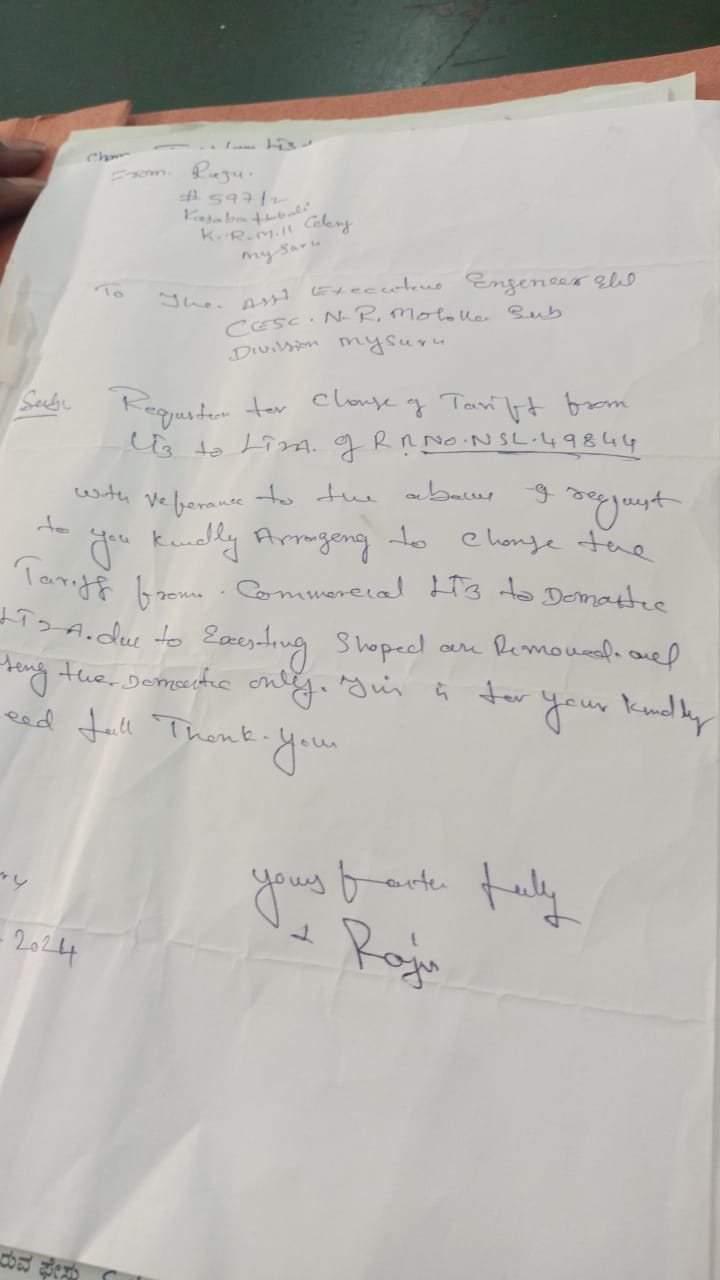 From. Raju.
# 597/2
Kasaba Hobali
K. R. Mill Colony
mysuru
To The. Asst Executive Engeneer Ele
CESC. N-R. Moholla Sub
Division mysuru
Sub:- Requstion for Change of Tariff from
LT3 to LT2A. of R R No. NSL. 49844
with referance to the above I request
to you kindly Arrageng to Change the
Tariff from. Commercial LT3 to Domastic
LT2A. due to Exesting Shoped are Removed. and
useng the Domastic only. This is for your kindly
need full Thank. you
yours faithe fully
Raju
2024
ರುವ ಫೇಸು